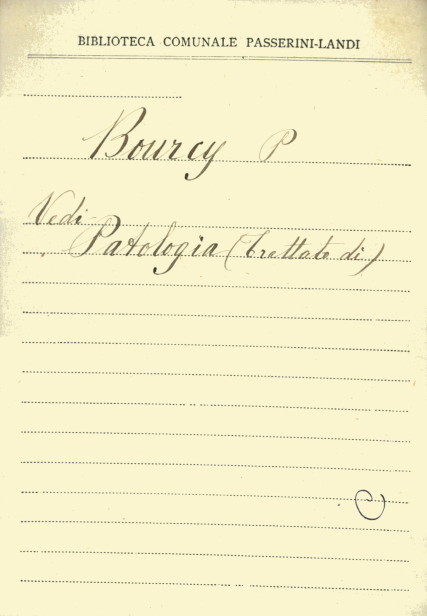 BIBLIOTECA COMUNALE PASSERINI-LANDI
Bourcy P
Vedi
Patologia (trattato di)
C